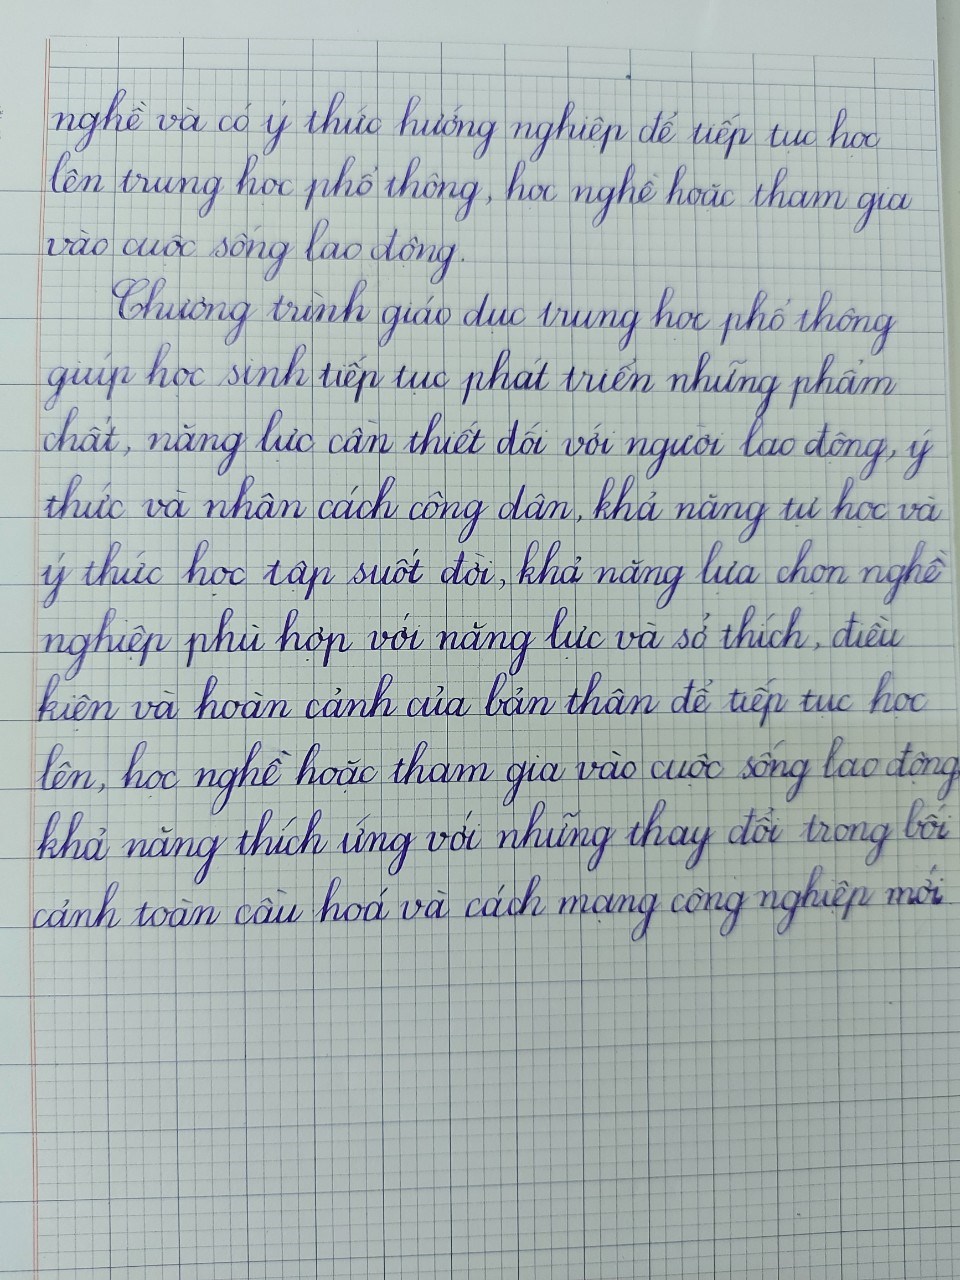 nghề và có ý thức hướng nghiệp để tiếp tục học
lên trung học phổ thông, học nghề hoặc tham gia
vào cuộc sống lao động.
Chương trình giáo dục trung học phổ thông
giúp học sinh tiếp tục phát triển những phẩm
chất, năng lực cần thiết đối với người lao động, ý
thức và nhân cách công dân, khả năng tự học và
ý thức học tập suốt đời, khả năng lựa chọn nghề
nghiệp phù hợp với năng lực và sở thích, điều
kiện và hoàn cảnh của bản thân để tiếp tục học
lên, học nghề hoặc tham gia vào cuộc sống lao động,
khả năng thích ứng với những thay đổi trong bối
cảnh toàn cầu hoá và cách mạng công nghiệp mới